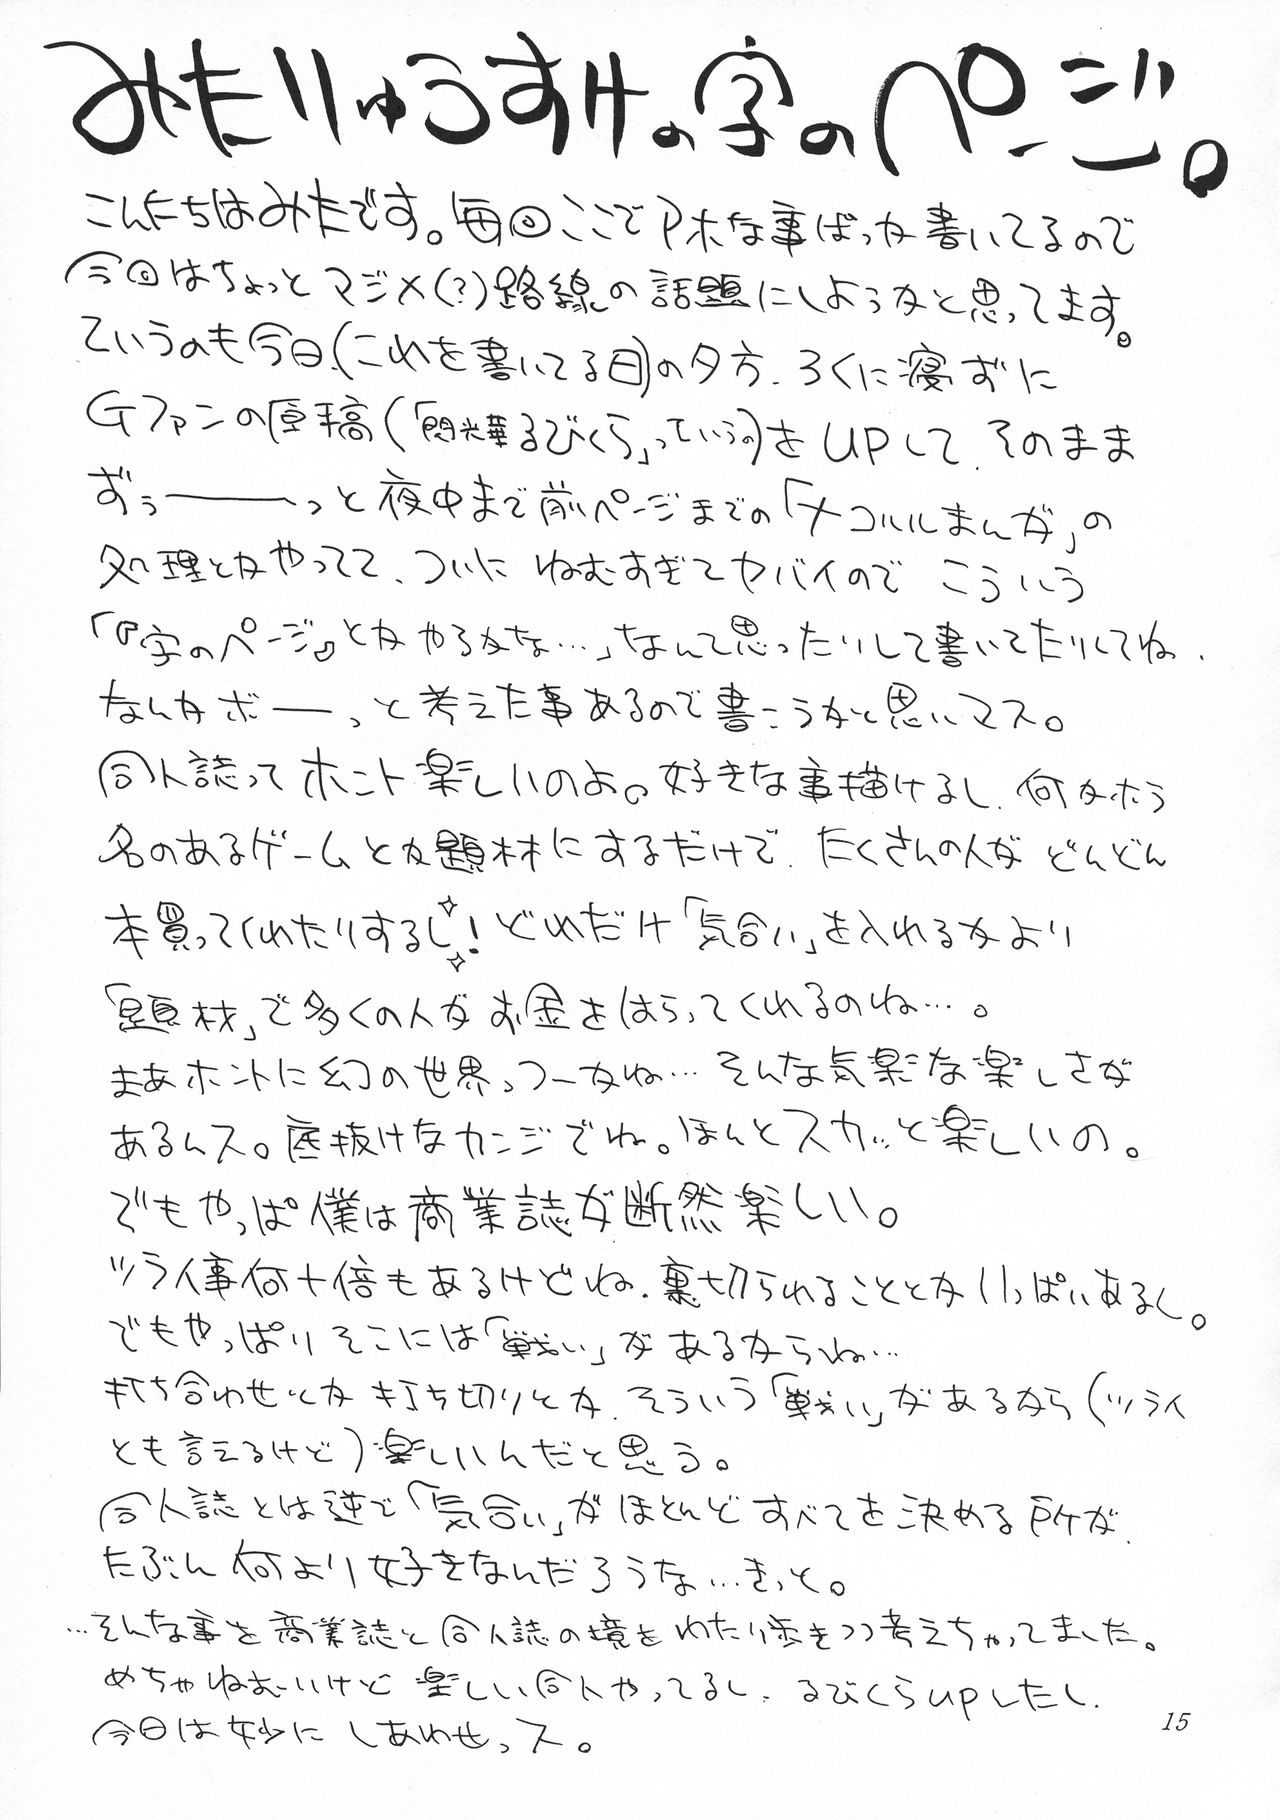 みたりゅうすけの字のページ。
こんにちはみたです。毎回ここでアホな事ばっか書いてるので
今回はちょっとマジメ(?)路線の話題にしようかと思ってます。
ていうのも今日、(これを書いてる日)の夕方、ろくに寝ずに
Gファンの原稿(「閃光華るびくら」っていうの)をUPして、そのまま
ずぅ――っと夜中まで前ページまでの「ナコルルまんが」の
処理とかやってて、ついにねむすぎてヤバイのでこういう
「『字のページ』とかやるかな…」なんて思ったりして書いてたりしてね、
なんかボーっと考えた事あるので書こうかと思いマス。
同人誌ってホント楽しいのよ。好きな事描けるし、何かホラ
名のあるゲームとか題材にするだけで、たくさんの人がどんどん
本買ってくれたりするし!どれだけ「気合い」を入れるかより
「題材」で多くの人がお金をはらってくれるのね…。
まあホントに幻の世界っつーかね…そんな気楽な楽しさが
あるんス。底抜けなカンジでね。ほんとスカッと楽しいの。
でもやっぱ僕は商業誌が断然楽しい。
ツライ事何十倍もあるけどね、裏切られることとかいっぱいあるし。
でもやっぱりそこには「戦い」があるからね…
打ち合わせとか打ち切りとか、そういう「戦い」があるから(ツライ
とも言えるけど)楽しいんだと思う。
同人誌とは逆で「気合い」がほとんどすべてを決める所が、
たぶん何より好きなんだろうな…きっと。
…そんな事を商業誌と同人誌の境をわたり歩きつつ考えちゃってました。
めちゃねむーいけど楽しい同人やってるし、るびくらUPしたし、
今日は妙にしあわせっス。
15